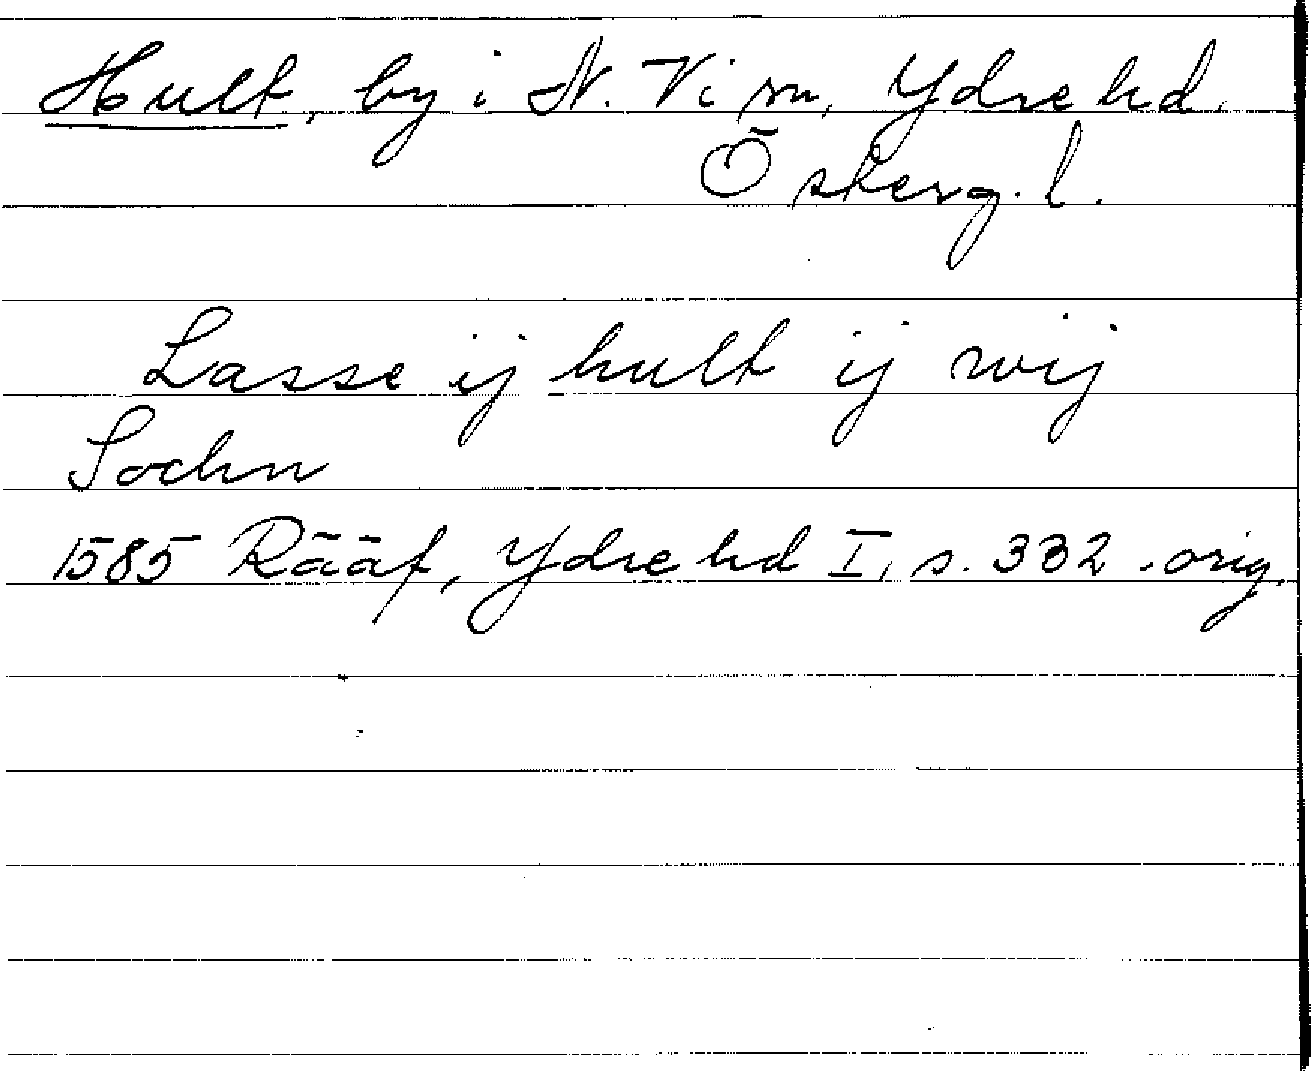 Hult, by i N. Vi sn, Ydre hd.
Österg. l.
Lasse ij hult ij wij
Sochn
1585 Rääf, Ydre hd I, s. 332. orig.